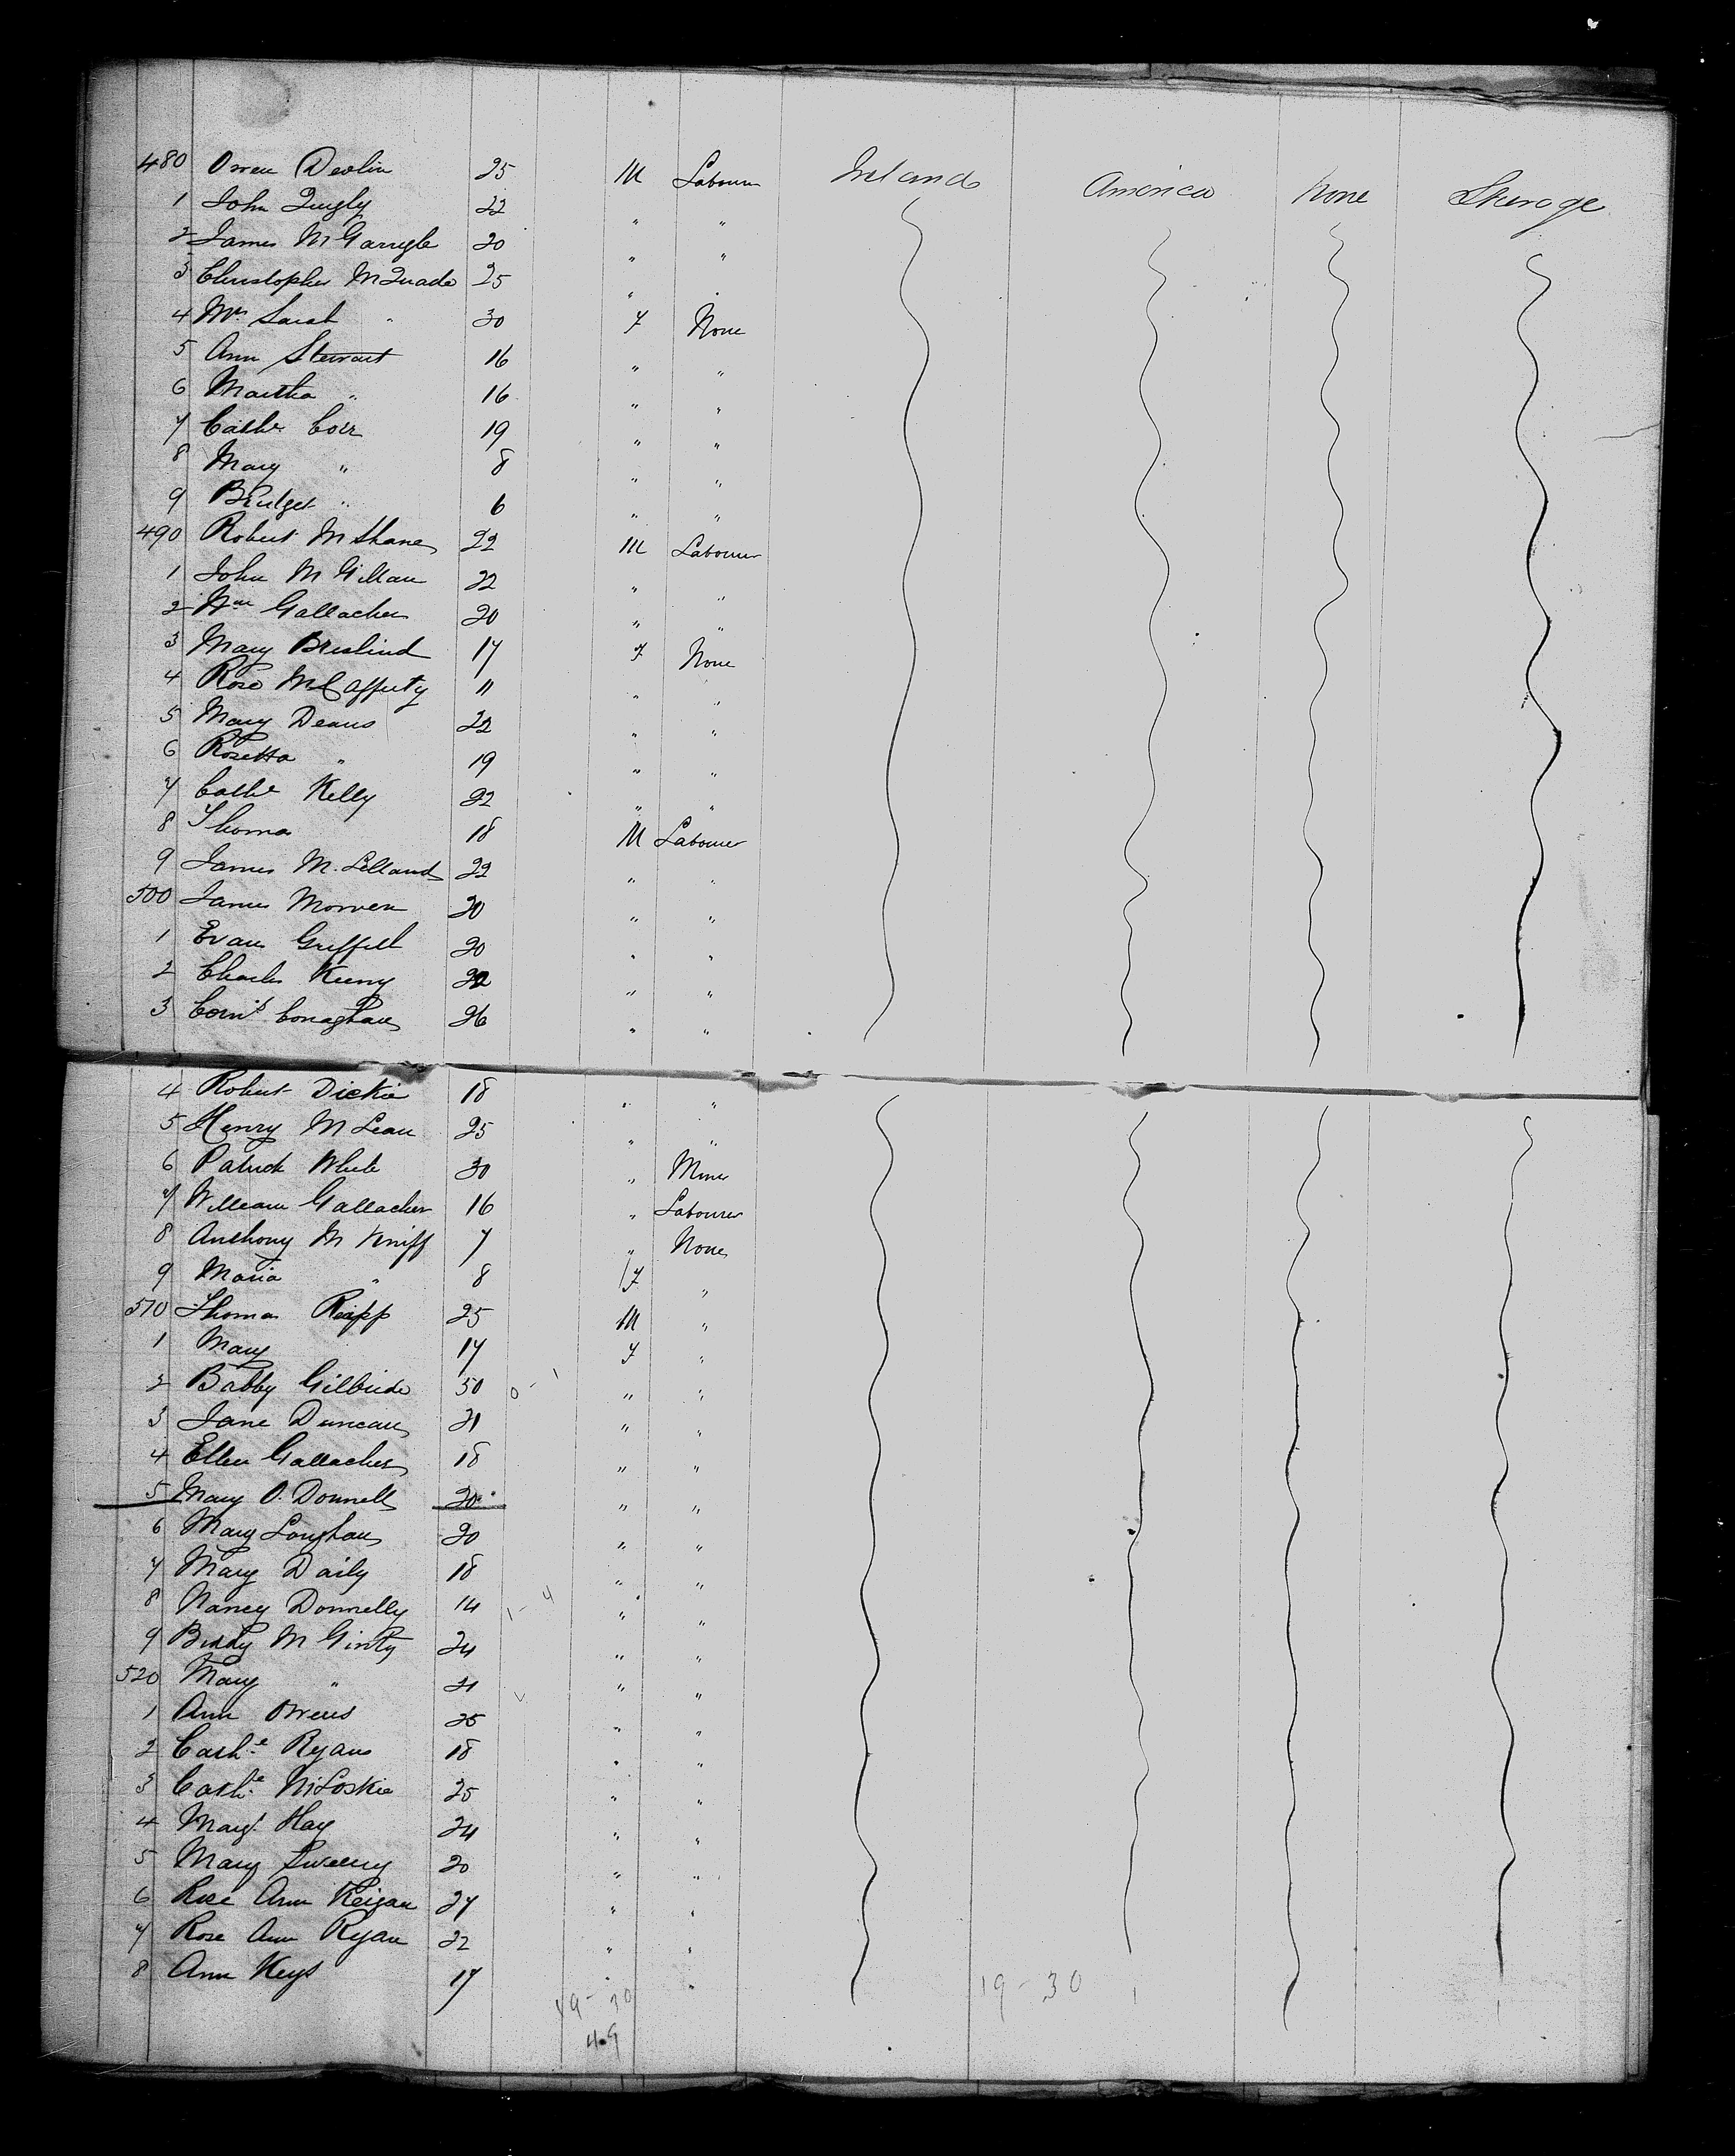 480 Owen Devlin 25 M Labourer Ireland America None Steerage
1 John Quigly 22 " "
2 James McGarrigle 20 " "
3 Christopher McQuade 25 " "
4 Mrs Sarah " 30 F None
5 Ann Stewart 16 " "
6 Martha " 16 " "
7 Cathe Corr 19 " "
8 Mary " 8 " "
9 Bridget " 6 " "
490 Robert McShane 22 M Labourer
1 John McGillan 22 " "
2 Wm Gallacher 20 " "
3 Mary Breslind 17 F None
4 Rose McCafferty 11 " "
5 Mary Deans 22 " "
6 Rosetta " 19 " "
7 Cathe Kelly 22 " "
8 Thomas 18 M Labourer
9 James M. Lelland 22 " "
500 James Morven 20 " "
1 Evan Griffith 20 " "
2 Charles Keeny " "
3 Corns Conaghan 26 " "
4 Robert Dickie 18 " "
5 Henry McLean 25 " "
6 Patrick White 30 " Miner
7 William Gallacher 16 " Labourer
8 Anthony McKniff 7 " None
9 Maria " 8 F "
510 Thomas Reapp 25 M "
1 Mary 17 F "
2 Babby Gilbride 50 0 - 1 " "
3 Jane Duncan 21 " "
4 Ellen Gallacher 18 " "
5 Mary O. Donnell 20 " "
6 Mary Loughan 20 " "
7 Mary Daily 18 " "
8 Nancy Donnelly 14 1 - 4 " "
9 Biddy McGinty 24 " "
520 Mary " 21 " "
1 Ann Owens 25 " "
2 Cathe Ryan 18 " "
3 Cathe McLoskie 25 " "
4 Margt Hay 24 " "
5 Mary Sweeny 20 " "
6 Rose Ann Keigan 27 " "
7 Rose Ann Ryan 22 " "
8 Ann Keys 17 " "
19 - 30 19 - 30
49